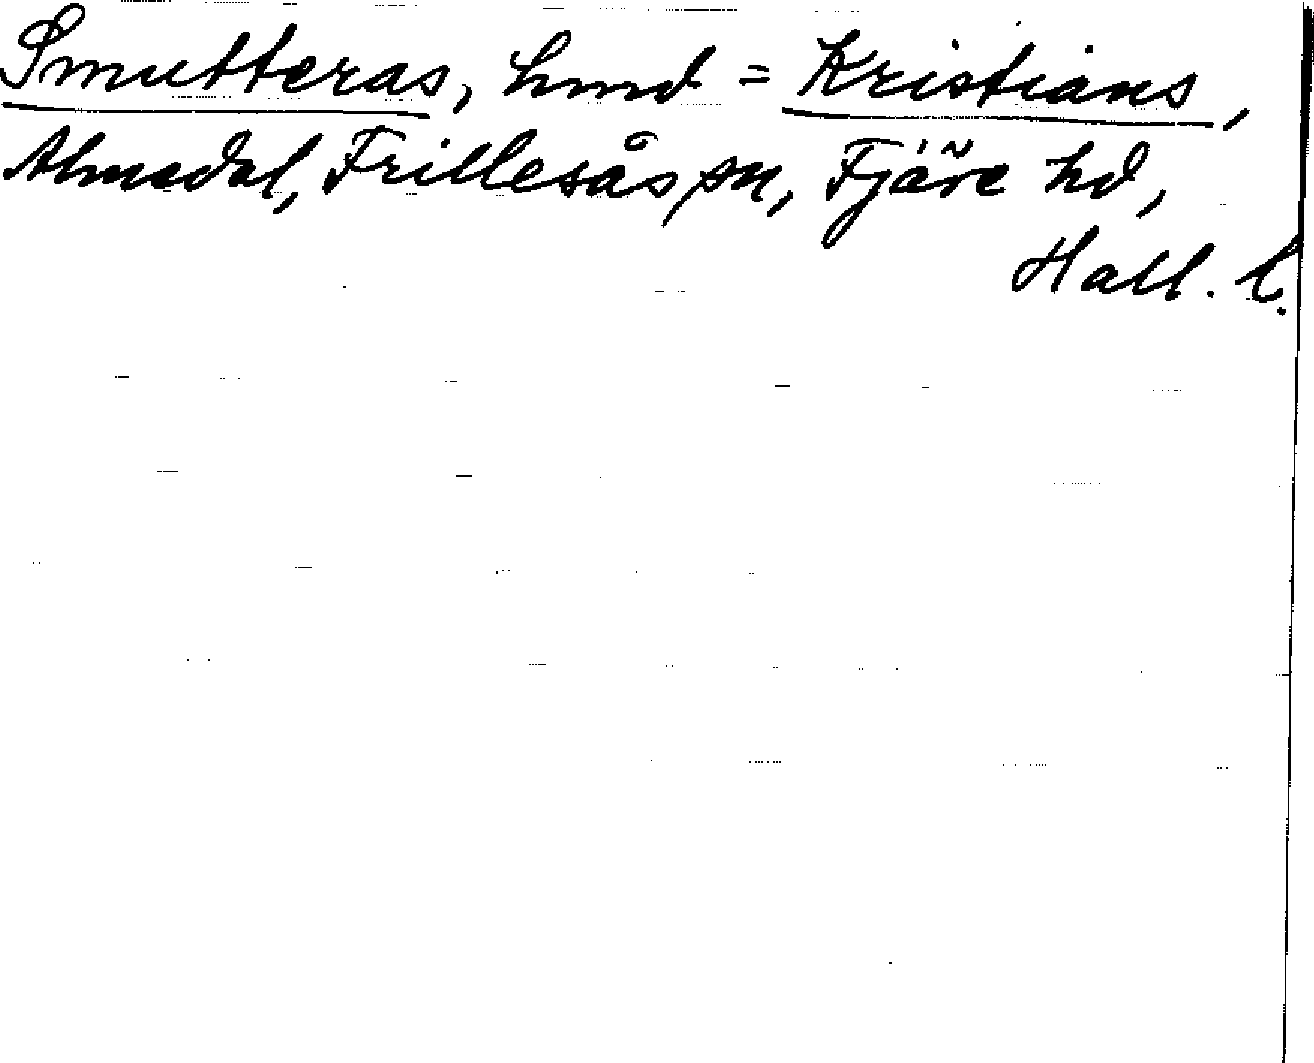 Smutteras, hmd = Kristians,
Almedal, Frillesås sn, Fjäre hd,
Hall. l.